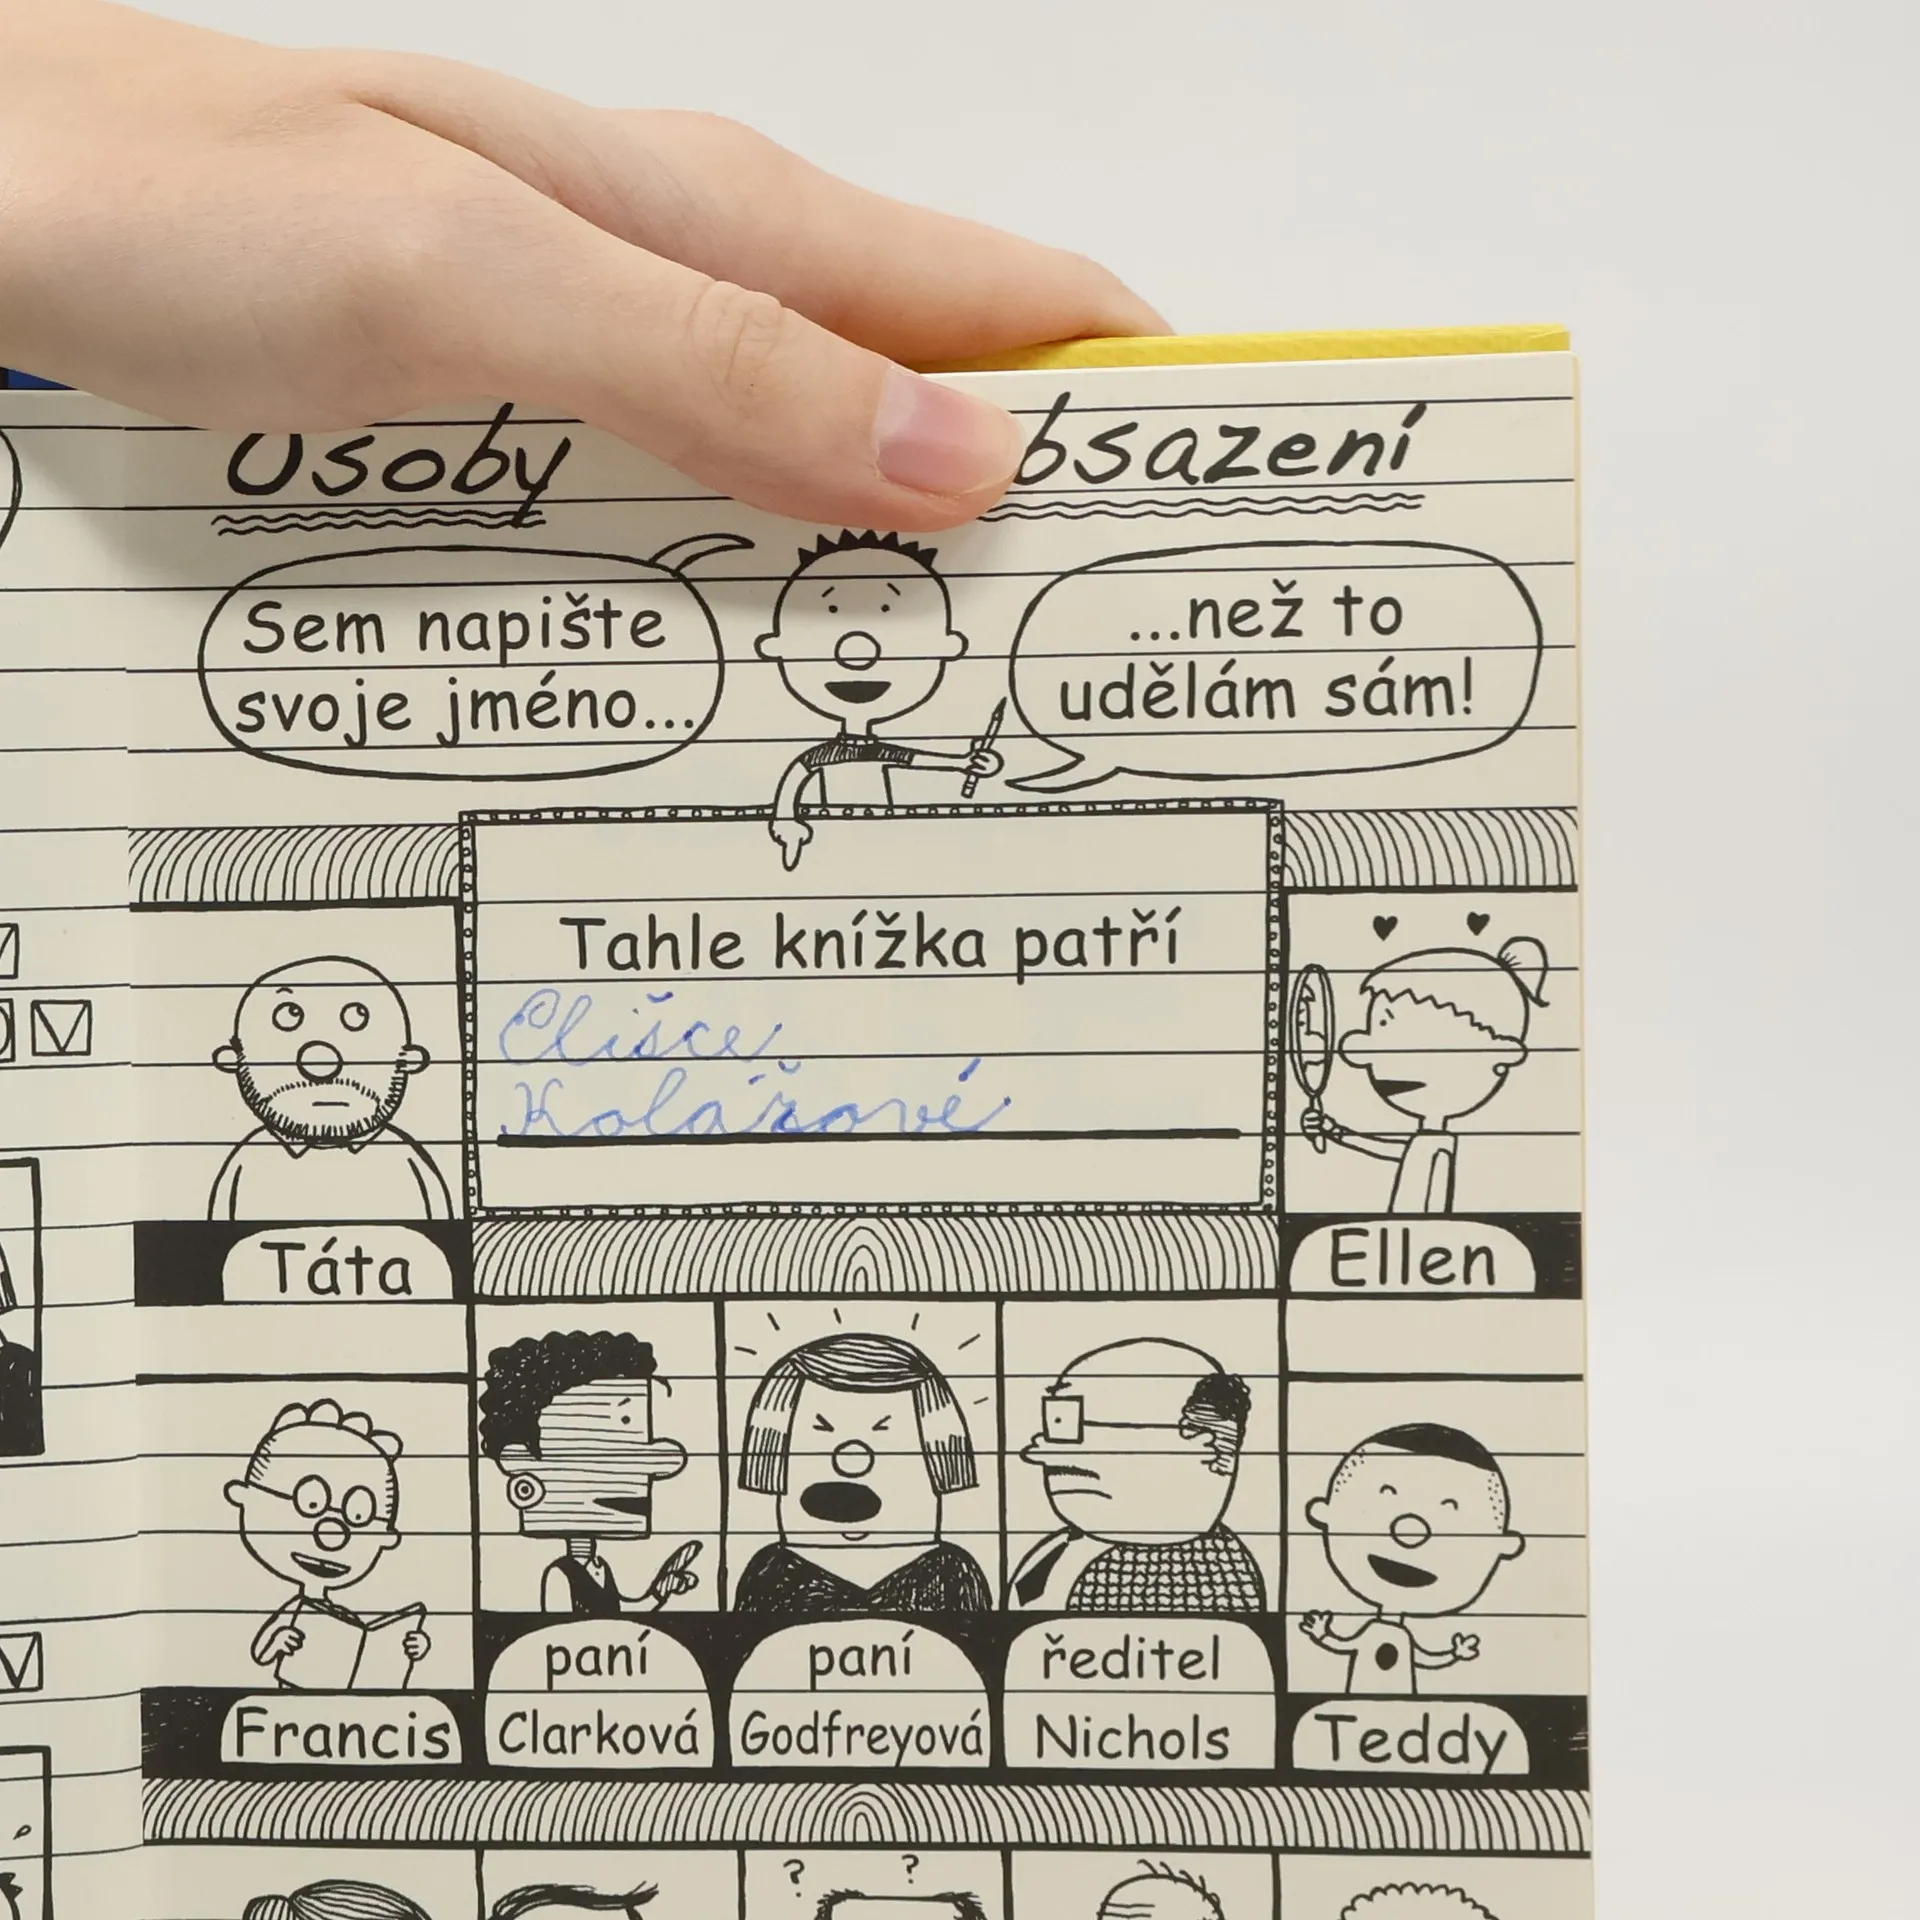 Osoby obsazení
Sem napište
svoje jméno...
...než to
udělám sám!
Tahle knížka patří
Elišce
Kolářové
Táta
Ellen
paní
Clarková
paní
Godfreyová
ředitel
Nichols
Francis
Teddy
? ?